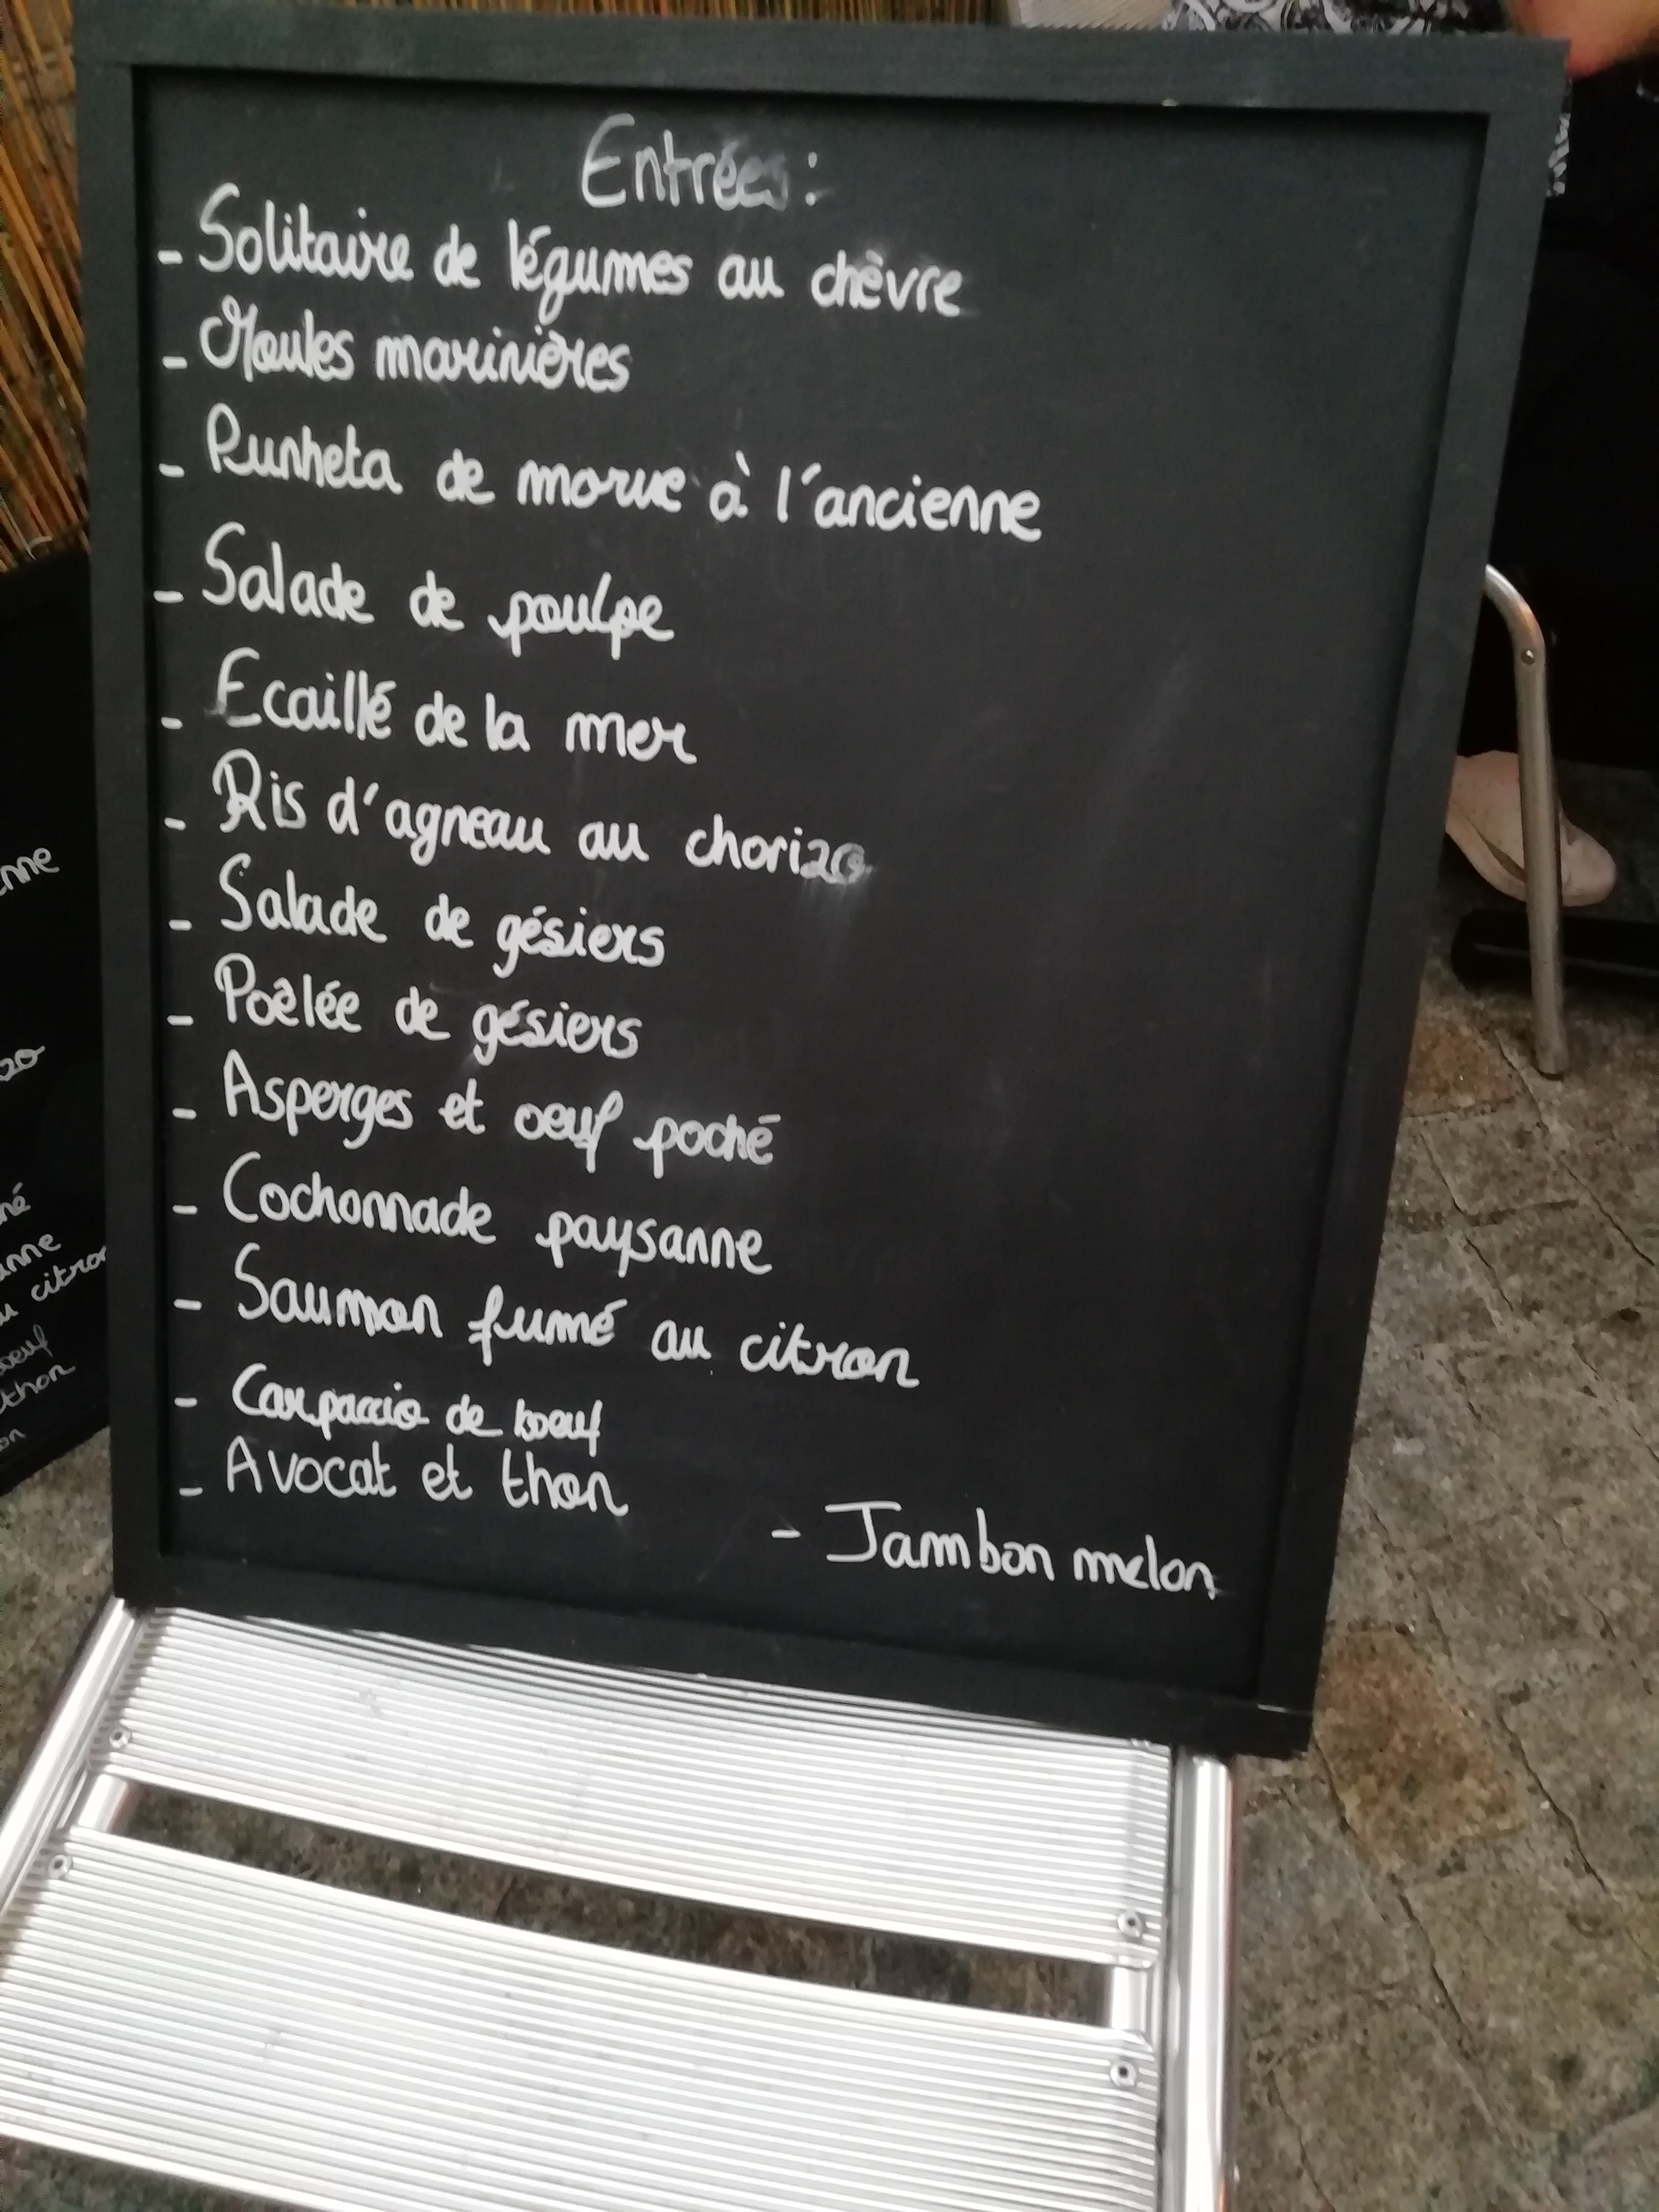 Entrées :
- Solitaire de légumes au chèvre
- Moules marinières
- Punheta de morue à l'ancienne
- Salade de poulpe
- Ecaillé de la mer
- Ris d'agneau au chorizo
- Salade de gésiers
- Poêlée de gésiers
- Asperges et oeuf poché
- Cochonnade paysanne
- Saumon fumé au citron
- Carpaccio de boeuf
- Avocat et thon
- Jambon melon
enne
zo
hé
anne
u citron
boeuf
thon
on